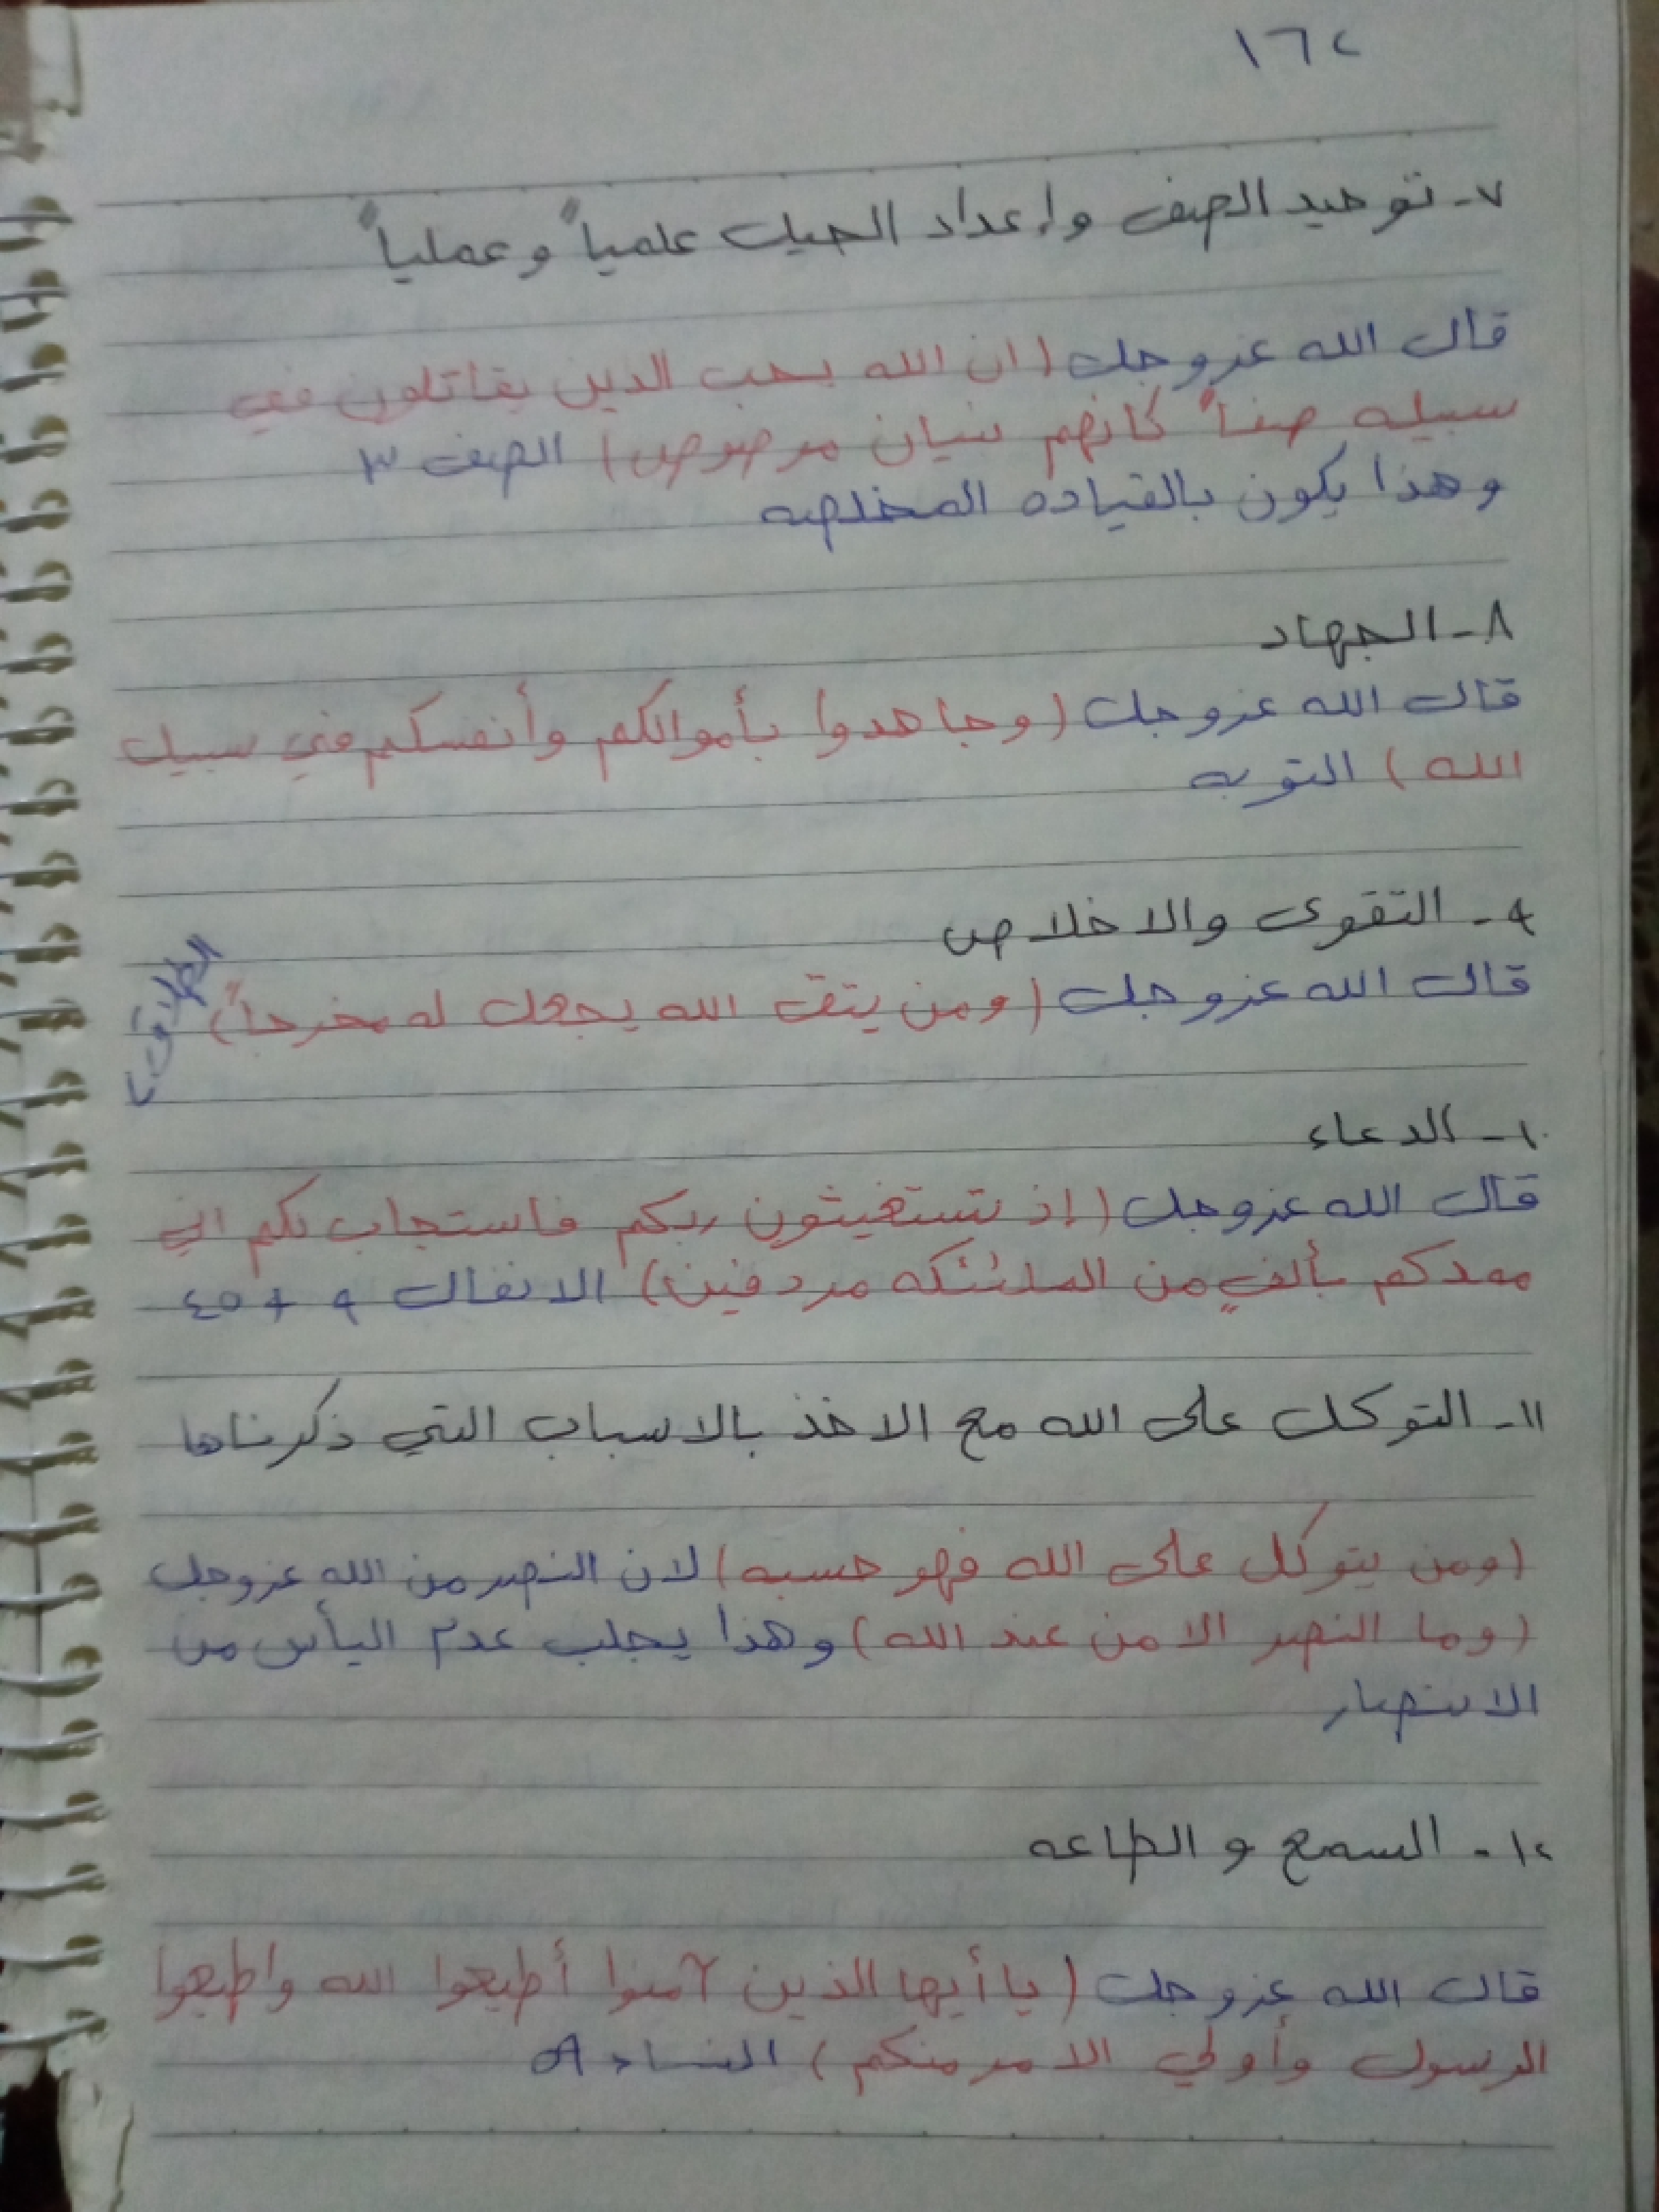 ١٦٢
٧- توحيد الصف وإعداد الجيل علمياً وعملياً
قال الله عزوجل (ان الله يحب الذين يقاتلون في
سبيله صفاً كانهم بنيان مرصوص) الصف ٣
وهذا يكون بالقياده المخلصه
٨- الجهاد
قال الله عزوجل (وجاهدوا بأموالكم وأنفسكم في سبيل
الله) التوبه
٩- التقوى والاخلاص
قال الله عزوجل (ومن يتق الله يجعل له مخرجاً) الطلاق ٢
١٠- الدعاء
قال الله عزوجل (إذ تستغيثون ربكم فاستجاب لكم اني
ممدكم بألفٍ من الملئكه مردفين) الانفال ٩ + ٤٥
١١- التوكل على الله مع الاخذ بالاسباب التي ذكرناها
(ومن يتوكل على الله فهو حسبه) لان النصر من الله عزوجل
(وما النصر الا من عند الله) وهذا يجلب عدم اليأس من
الانتصار
١٢- السمع و الطاعه
قال الله عزوجل (يا أيها الذين آمنوا أطيعوا الله واطيعوا
الرسول وأولي الامر منكم) النساء ٥٩